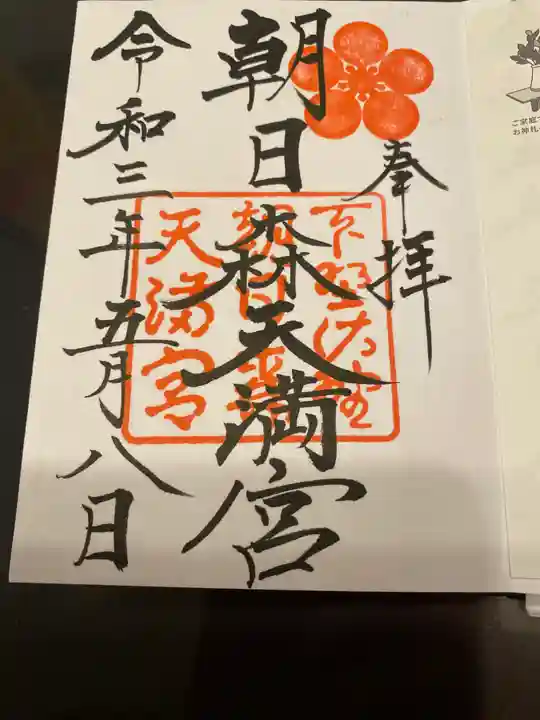 奉拝
朝日森天満宮
下野佐野
朝日森
天満宮
令和三年五月八日
ご家庭
お神札